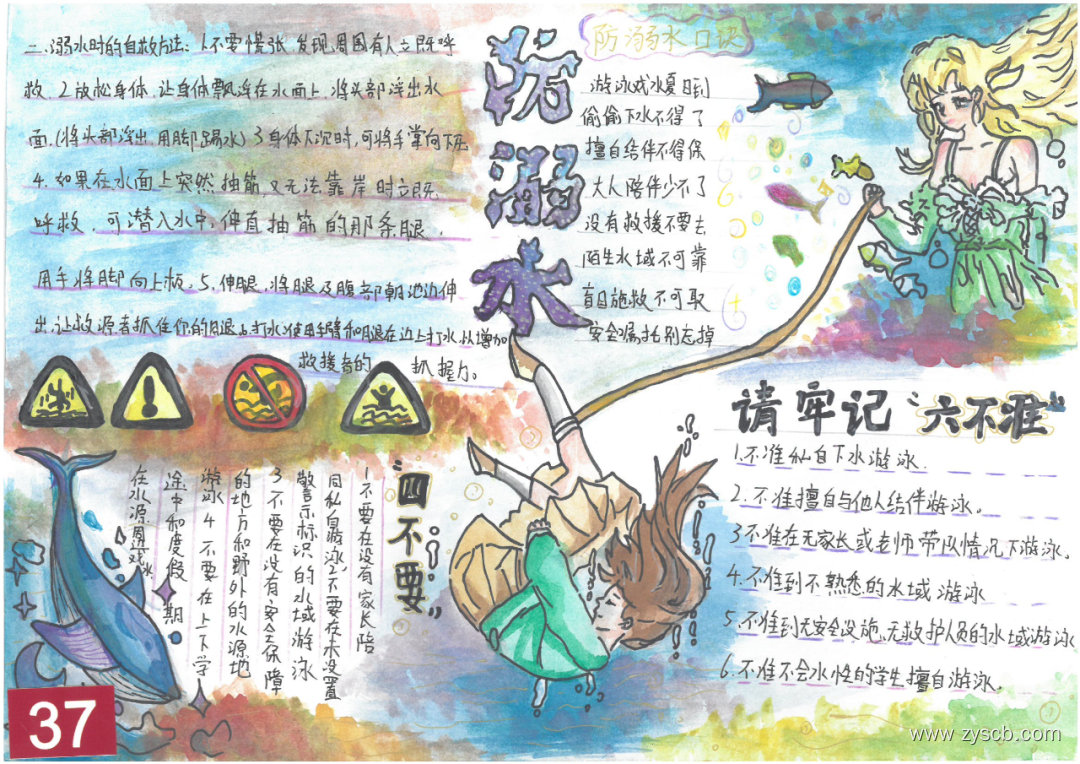 二.溺水时的自救方法：1不要慌张 发现周围有人立既呼
救.2放松身体.让身体飘浮在水面上.将头部浮出水
面.(将头部浮出.用脚踢水)3身体下沉时,可将手掌向下压
4.如果在水面上突然抽筋 又无法靠岸时立既
呼救.可潜入水中,伸直抽筋的那条腿.
用手将脚向上板,5.伸腿,将腿及腹部朝池边伸
出,让救源者抓住你的腿6打水:使用手臂和腿在边上打水,从增加
救援者的 抓握力。
防溺水
防溺水口诀
游泳戏水夏日到
偷偷下水不得了
擅自结伴不得保
大人陪伴少不了
没有救援不要去
陌生水域不可靠
盲目施救不可取
安全嘱托别忘掉
请牢记“六不准”
1.不准私自下水游泳.
2.不准擅自与他人结伴游泳。
3不准在无家长或老师带队情况下游泳。
4.不准到不熟悉的水域游泳
5.不准到无安全设施、无救护人员的水域游泳
6.不准不会水性的学生擅自游泳。
“四不要”
1不要在没有家长陪
同私自游泳2不要在木设置
警示标识的水域游泳
3不要在没有安全保障
的地方和野外的水源地
游泳4不要在上下学
途中和度假期
在水源周边
37
www.zyscb.com